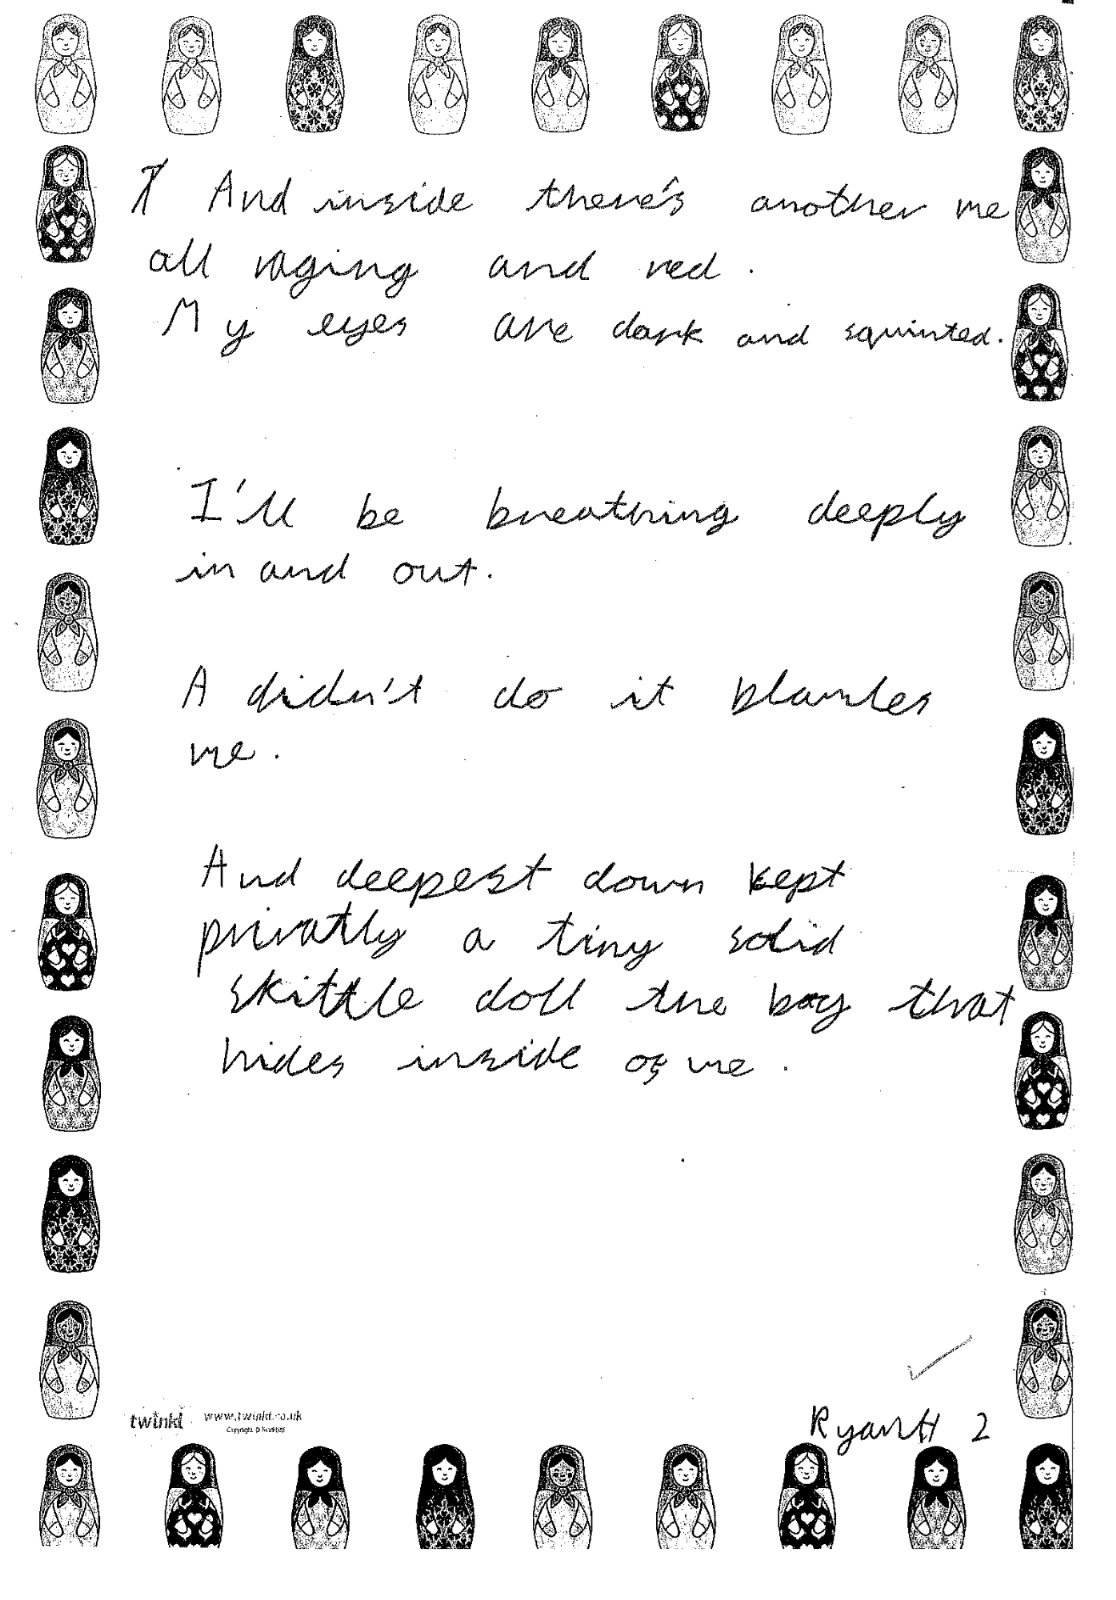 And inside there's another me
all raging and red.
My eyes are dark and squinted.
I'll be breathing deeply
in and out.
A didn't do it blames
me.
And deepest down kept
privatly a tiny solid
skittle doll the boy that
hides inside of me.
twinkl www.twinkl.co.uk
RyanH 2